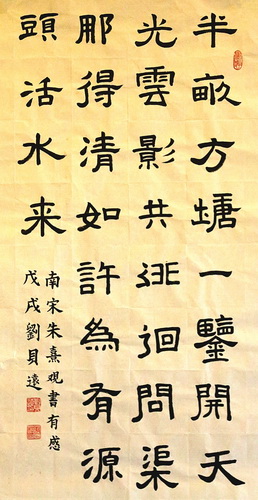 半畝方塘一鑒開天
光雲影共徘徊問渠
那得清如許為有源
頭活水来
南宋朱熹观書有感
戊戌劉貝遠